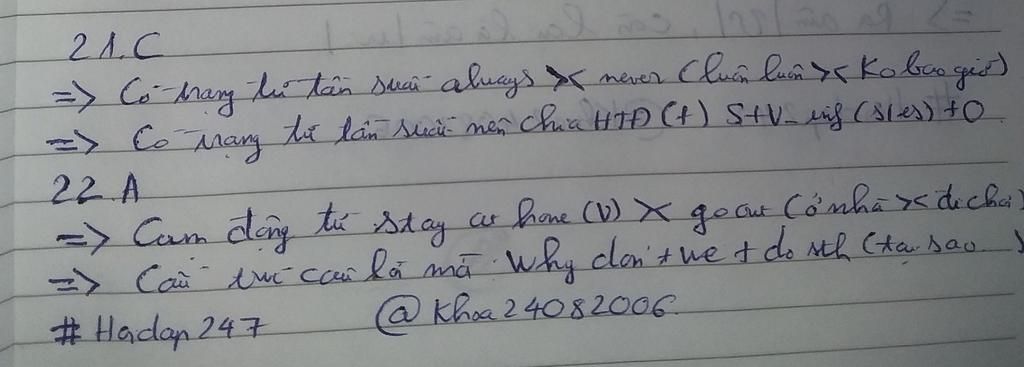 21.C
=> Có trạng từ tần suất always >< never (luôn luôn >< Ko bao giờ)
=> Có trạng từ tần suất nên chia HTĐ (+) S+V_inf (s/es) + O
22.A
=> Cụm động từ stay at home (V) >< go out (ở nhà >< đi chơi)
=> Cấu trúc câu là mà Why don't we + do sth (tại sao )
# Hoidap247 @Khoa24082006.